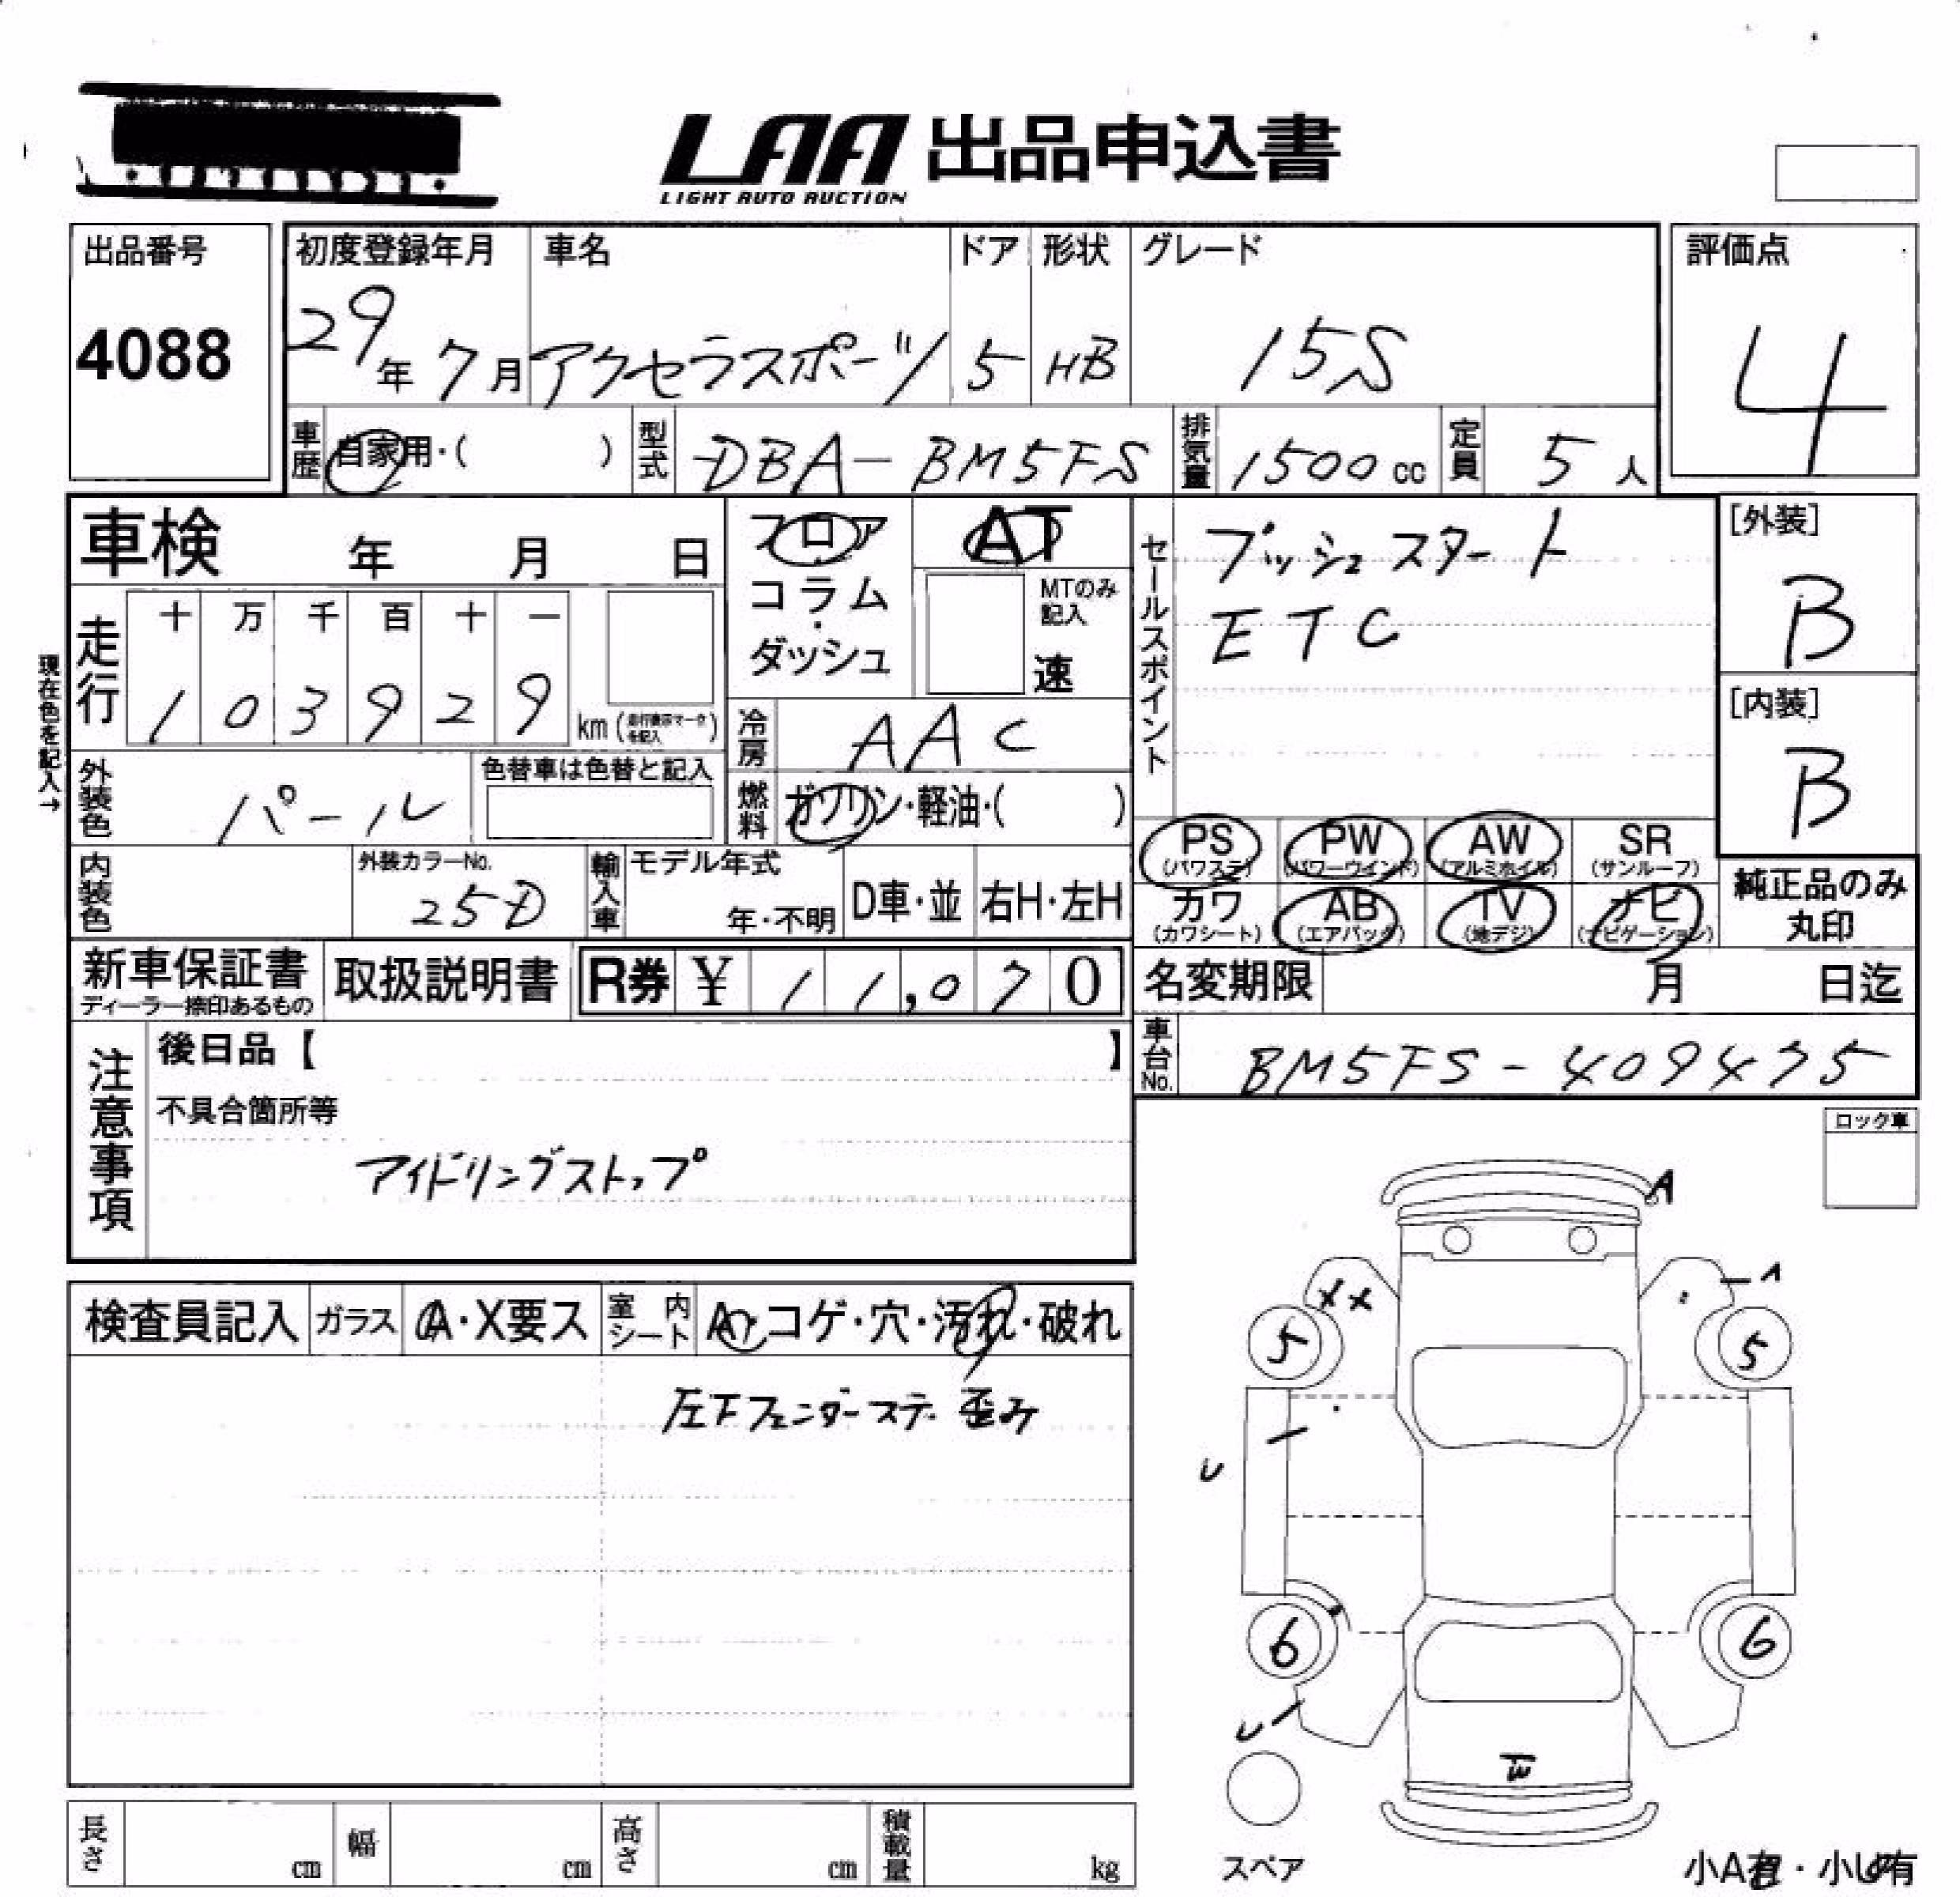 LAA 出品申込書
LIGHT AUTO AUCTION
出品番号
4088
初度登録年月
29年 7月
車名
アクセラスポーツ
ドア
5
形状
HB
グレード
15S
評価点
4
車歴 自家用・( )
型式 DBA-BM5FS
排気量 1500cc
定員 5人
車検 年 月 日
フロア
コラム・
ダッシュ
AT
MTのみ記入
速
セールスポイント
プッシュスタート
ETC
[外装]
B
[内装]
B
現在色を記入→
走行
十 万 千 百 十 一
1 0 3 9 2 9 km (走行表示マークを記入)
冷房 AAC
外装色 パール
色替車は色替と記入
燃料 ガソリン・軽油・( )
PS (パワステ)
PW (パワーウインド)
AW (アルミホイル)
SR (サンルーフ)
カワ (カワシート)
AB (エアバック)
TV (地デジ)
ナビ (ナビゲーション)
純正品のみ
丸印
内装色
外装カラーNo.
25D
輸入車
モデル年式
年・不明
D車・並
右H・左H
新車保証書
ディーラー捺印あるもの
取扱説明書
R券 ¥ 11,070
名変期限 月 日迄
車台No. BM5FS-409475
注意事項
後日品【 】
不具合箇所等
アイドリングストップ
ロック車
検査員記入
ガラス
A・X要ス
室内シート
コゲ・穴・汚れ・破れ
左下フェンダーステー 歪み
A
A
XX
5
5
U
6
6
U
W
スペア
長さ cm
幅 cm
高さ cm
積載量 kg
小A有・小U有